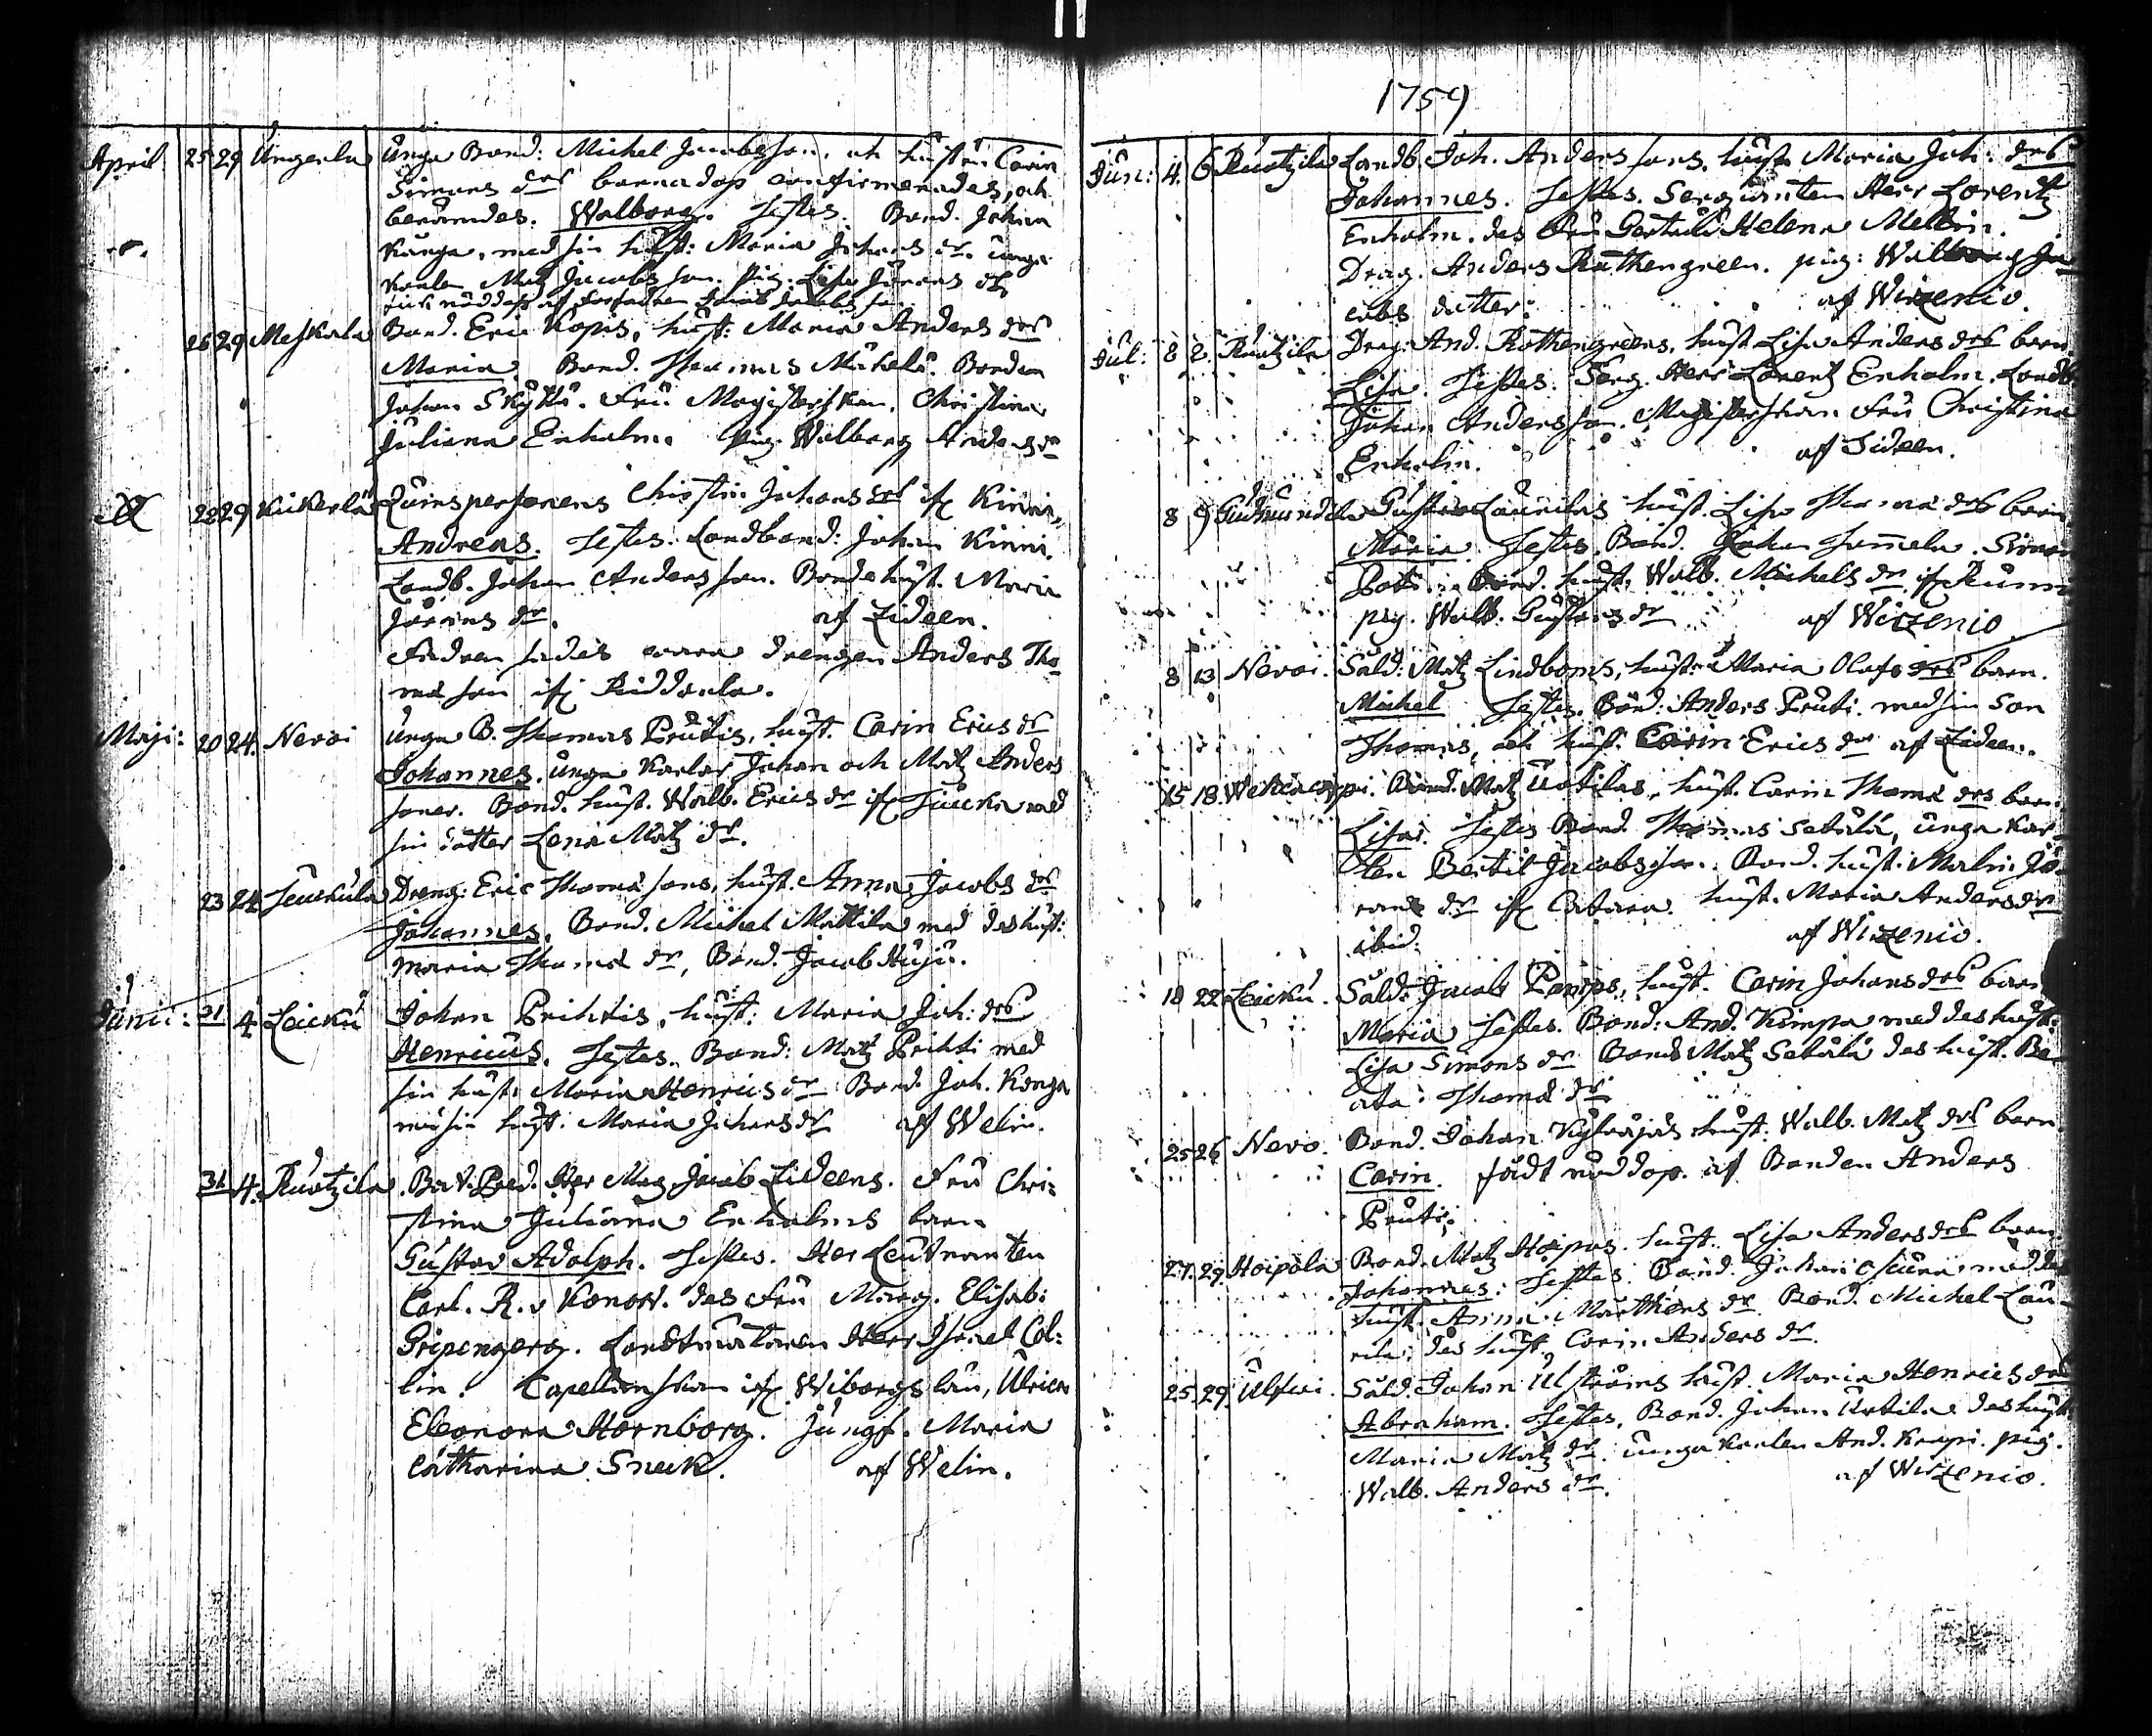 1759
April 25 29 Ungerla Unga Bond: Michel Jacobsson, och hustru Carin
Simons drs barnadop confirmerades, och
berömdes. Walborg. Testes. Bond. Johan
Kånga, med sin hust: Maria Johans dr. unga
Karlen Matz Jacobsson. Pig. Lisa Jörans dr
26 29 Meskala Bond. Eric Kopis, hust: Maria Anders drs
Maria. Bond. Thomas Mickelä. Bonden
Johan Skyttä. Fru Magisterskan Christina
Juliana Enholm. Pig. Walborg Anders dr
22 29 Kickerlä Quinspersonens Christin Johans drs ifr Kinni,
Andreas. Testes. Landbond: Johan Kinni.
Landb. Johan Andersson. Bondehust. Maria
Jörans dr. af Zideen.
Fadren sades wara drengen Anders Tho
mæ son ifr Kiddaula.
Maji: 20 24. Nevoi Unga B. Thomas Prutis, hust. Carin Erics dr
Johannes. unga Karlar Johan och Matz Anders
soner. Bond. hust. Walb. Erics dr ifr Juckra med
sin dotter Lena Matz dr.
23 24. Dreng: Eric Thomæ sons, hust. Anna Jacobs drs
Johannes. Bond. Michel Mattila med des hust:
Maria Thomæ dr, Bond. Jacob Huju.
Junii: 31 4. Leicku Johan Prihtis, hust: Maria Joh: drs
Henricus. Testes. Bond: Matz Prihti med
sin hust: Maria Henrics dr Bond. Joh. Konga
med sin hust. Maria Johans dr af Welin.
31 4. Ruotzila. Bat. Pred. Her Mag Jacob Zideens. Fru Chri:
stina Juliana Enholms barn
Gustav Adolph. Testes. Her Leutnanten
Carl. R. v Konow. des Fru Marg. Elisab:
Gripengerg. Landtmätaren Herr Israel Col:
lin. Capellanskan ifr Wiborgs län, Ulrica
Eleonora Hornborg. Jungf. Maria
Catharina Sneck. af Welin.
Jun: 4. 6 Ruotzila Landb. Joh. Anders sons. hust Maria Joh: drs
Johannes. Testes. Sergianten Herr Lorentz
Enholm. des Fru Gertrud Helena Mellin.
Drag. Anders Ruthengreen. pig: Walborg Ja
cobs dotter: af Wirzenio.
Jul: 8 2. Ruotzila Drag: And. Rothengreens, hust Lisa Anders drs barn
Lisa. Testes: Serg. Herr Lorentz Enholm. Landb
Johan Andersson. Magisterskan Fru Christina
Enholm. af Sideen.
8 9 Gudmundela Gustav Laurilas hust. Lisa Thomæ drs barn
Maria. Testes. Bond. Johan Sameli. Simon
Bond. hust. Walb. Michels dr ifr
pig. Walb. Gustavs dr af Wirzenio
8 13 Nevoi. Sald: Matz Lindboms, hustru Maria Olofs drs barn.
Michel Testes. Bond: Anders Pruti. med sin son
Thomas, och hust. Carin Erics dr af Zideen.
15 18 Bond. Matz Uotilas, hust. Carin Thomæ drs barn.
Lisa. Testes Bond. Thomas Setälä, unga Kar
len Bertil Jacobsson. Bond. hust: Malin Jö
rans dr ifr Catara. hust. Maria Anders dr
ibid. af Wirzenio.
18 22 Leicku. Sald: Jacob Ramps, hust. Carin Johans drs barn
Maria Testes. Bond: And. Kimpa med des hust:
Lisa Simons dr Bond Matz Setälä des hust. Be
ata Thomæ dr
25 26 Nevo. Bond. Johan Kylväjäs hust: Walb. Matz drs barn.
Carin. fådt nöddop. af Bonden Anders
Pruti.
27. 29. Hoipola Bond. Matz Hoipas. hust. Lisa Anders drs barn
Johannes: Testes. Bond. Johan med des
hust. Anna Marthens dr Bond. Michel Lau
rila: des hust. Carin Anders dr.
25. 29. Sald. Johan Ulströms hust. Maria Henrics drs
Abraham. Testes. Bond. Johan Uotila des hust
Maria Matz dr. unga Karlen And. Krapi. pig.
Walb. Anders dr. af Wirzenio.